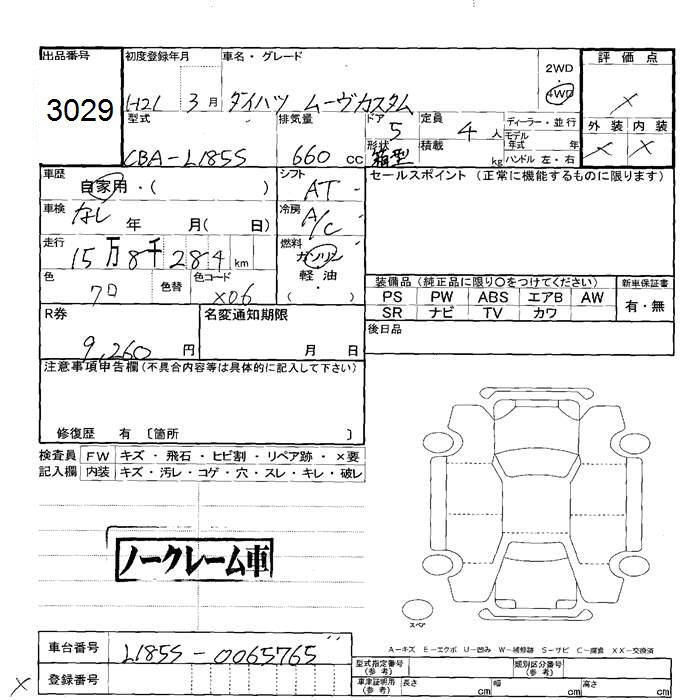 出品番号
3029
初度登録年月
H21 3月
車名・グレード
ダイハツ ムーヴカスタム
2WD
4WD
評価点
×
外装 内装
× ×
型式
CBA-L185S
排気量
660 cc
ドア
5
定員
4 人
形状
箱型
積載
kg
ディーラー・並行
モデル年式 年
ハンドル 左・右
車歴
自家用・( )
シフト
AT -
車検
なし 年 月( 日)
冷房
A/C
走行
15万8千284km
燃料
ガソリン
軽油
( )
色
クロ
色替
色コード
X06
セールスポイント (正常に機能するものに限ります)
装備品 (純正品に限り○をつけてください)
PS PW ABS エアB AW
SR ナビ TV カワ
新車保証書
有・無
後日品
R券
9,260 円
名変通知期限
月 日
注意事項申告欄(不具合内容等は具体的に記入して下さい)
修復歴 有 〔箇所 〕
検査員記入欄
FW キズ・飛石・ヒビ割・リペア跡・×要
内装 キズ・汚レ・コゲ・穴・スレ・キレ・破レ
ノークレーム車
スペア
A-キズ E-エクボ U-凹み W-補修跡 S-サビ C-腐食 XX-交換済
車台番号
L185S-0065765
登録番号
×
型式指定番号
(参考)
類別区分番号
(参考)
車庫証明用
(参考)
長さ cm 幅 cm 高さ cm